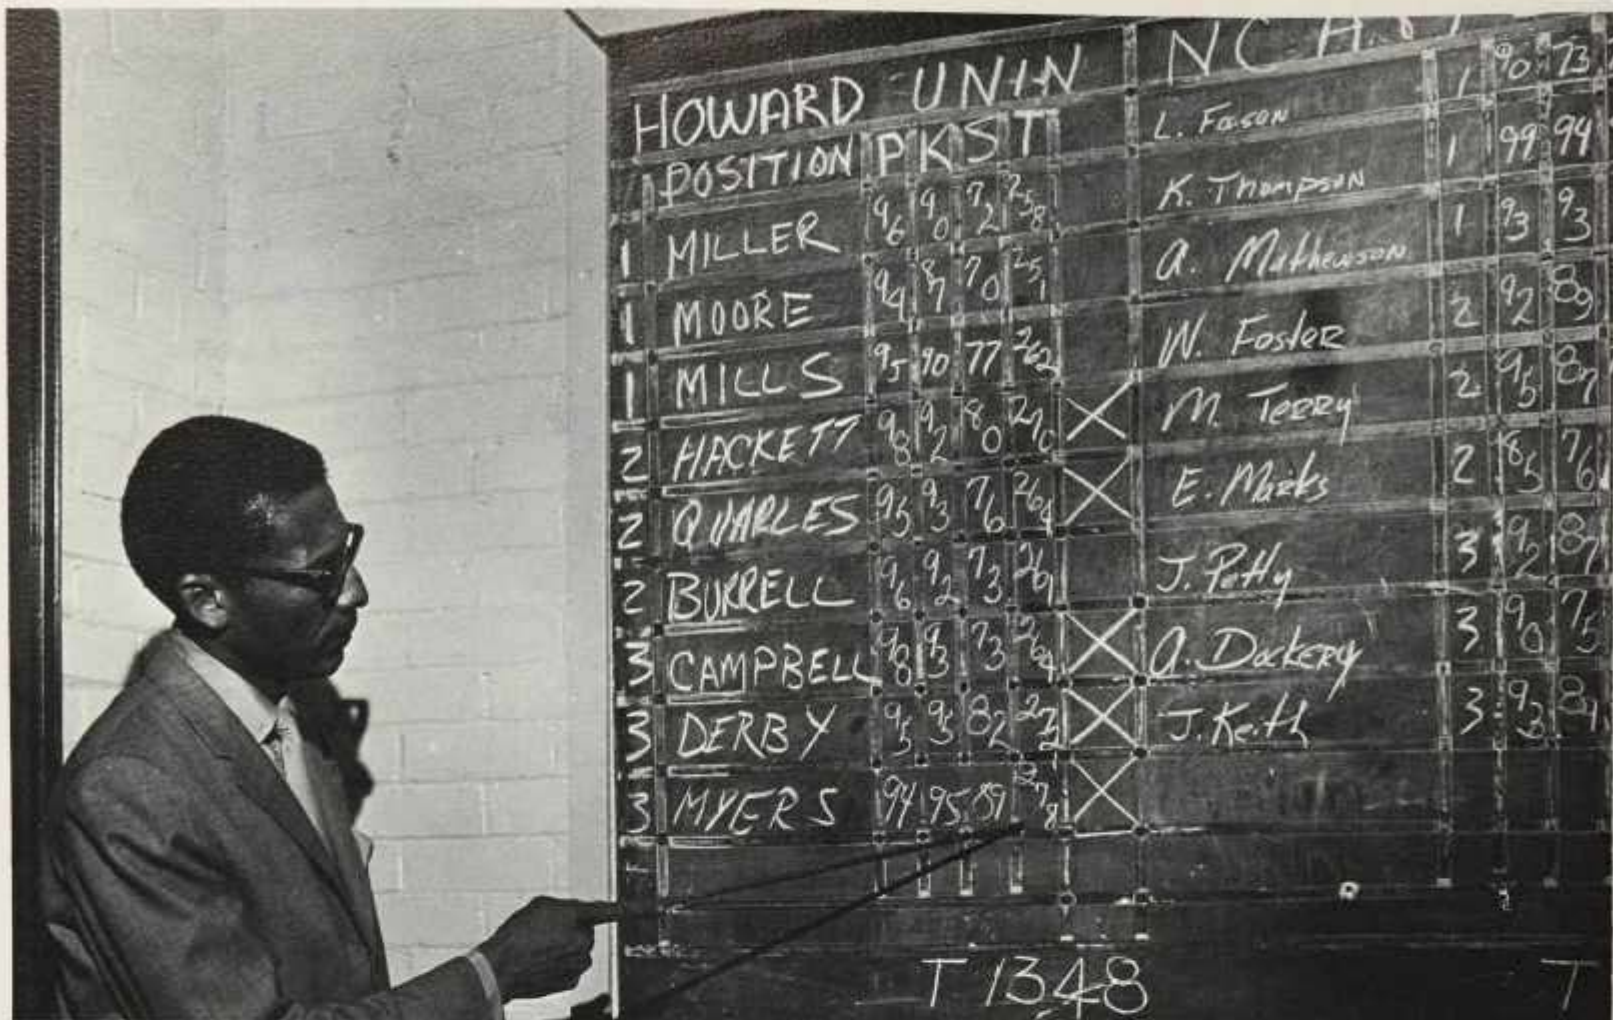 HOWARD UNIN
POSITION P K S T
1 MILLER 96 90 72 258
1 MOORE 94 87 70 251
1 MILLS 95 90 77 262
2 HACKETT 98 92 80 270 X
2 QUARLES 95 93 76 264 X
2 BURRELL 96 92 73 261
3 CAMPBELL 98 93 73 264 X
3 DERBY 95 95 82 272 X
3 MYERS 94 95 89 278 X
T 1348
NC A.
L. Fason 1 90 73
K. Thompson 1 99 94
A. Mathewson 1 93 93
W. Foster 2 92 89
M. Terry 2 95 87
E. Marks 2 85 76
J. Petty 3 92 87
A. Dockery 3 90 75
J. Keith 3 93 84
T